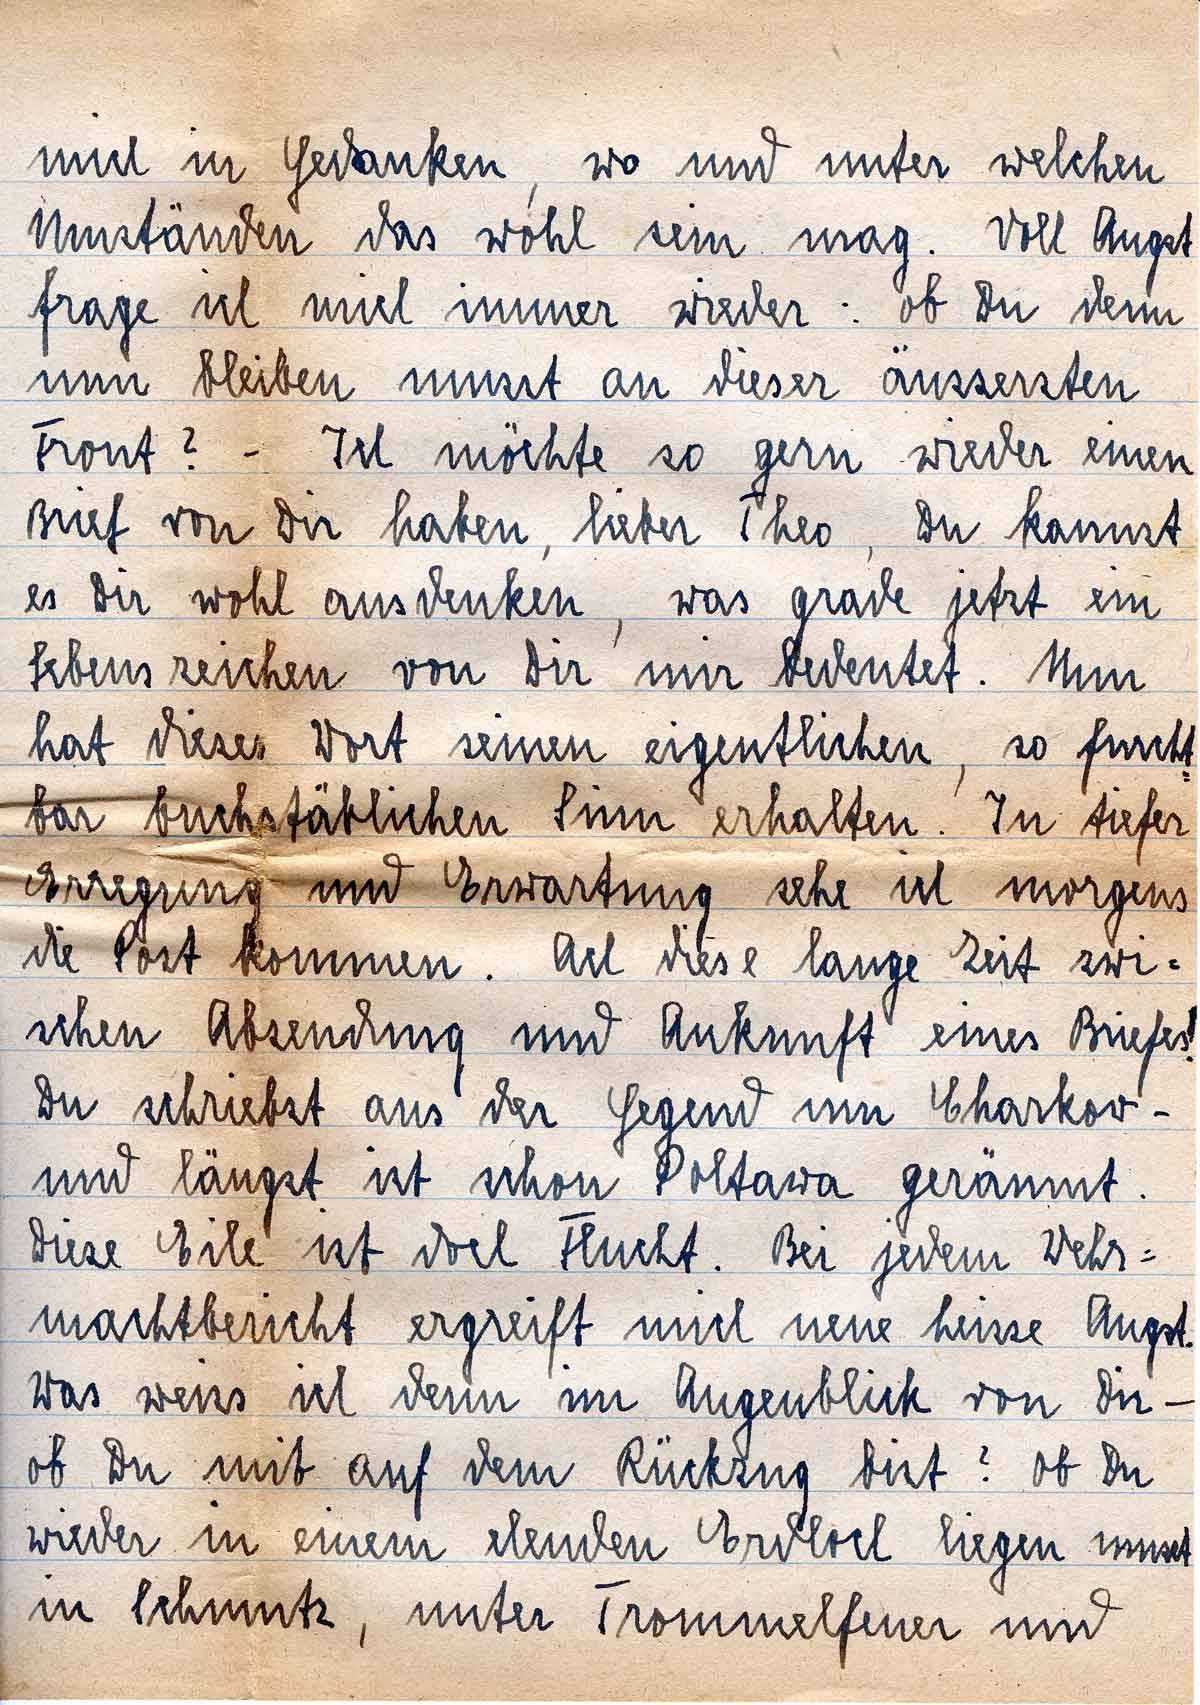 mich in Gedanken, wo und unter welchen
Umständen das wohl sein mag. Voll Angst
frage ich mich immer wieder: ob Du denn
nun bleiben musst an dieser äussersten
Front? - Ich möchte so gern wieder einen
Brief von Dir haben, lieber Theo, Du kannst
es Dir wohl ausdenken, was grade jetzt ein
Lebenszeichen von Dir mir bedeutet. Nun
hat dieses Wort seinen eigentlichen, so furcht=
bar buchstäblichen Sinn erhalten. In tiefer
Erregung und Erwartung sehe ich morgens
die Post kommen. Ach diese lange Zeit zwi=
schen Absendung und Ankunft eines Briefes!
Du schriebst aus der Gegend um Charkow-
und längst ist schon Poltawa geräumt.
Diese Eile ist doch Flucht. Bei jedem Wehr=
machtbericht ergreift mich neue heisse Angst.
Was weiss ich denn im Augenblick von Dir-
ob Du mit auf dem Rückzug bist? Ob Du
wieder in einem elenden Erdloch liegen musst
in Schmutz, unter Trommelfeuer und